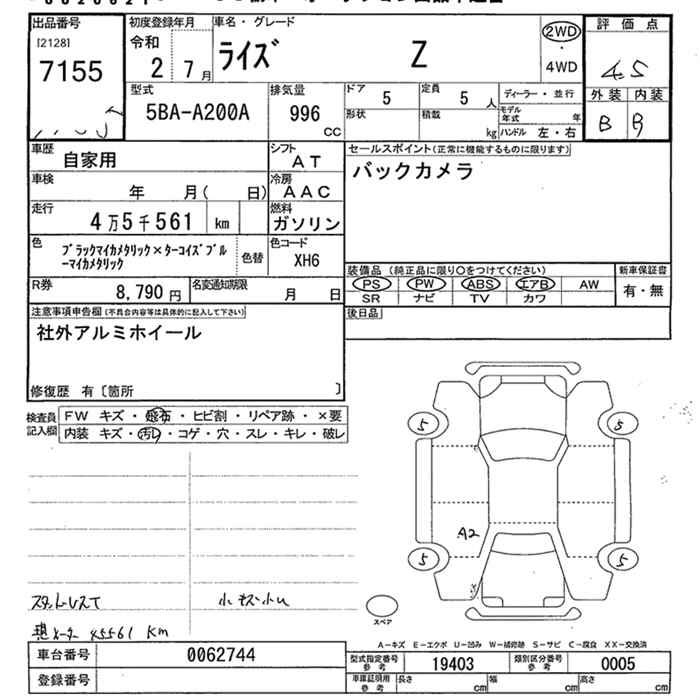 出品番号 初度登録年月 車名・グレード 評価点
[2128] 令和 2WD
7155 2 7月 ライズ Z 4WD 4.5
型式 排気量 ドア 5 定員 5人 ディーラー・並行 外装 内装
5BA-A200A 996 CC 形状 積載 kg モデル年式 年 B B
ハンドル 左・右
車歴 自家用 シフト AT セールスポイント(正常に機能するものに限ります)
車検 年 月( 日) 冷房 AAC バックカメラ
走行 4万5千561 km 燃料 ガソリン
色 ブラックマイカメタリック×ターコイズブル 色替 色コード
ーマイカメタリック XH6
装備品(純正品に限り○をつけてください) 新車保証書
R券 8,790円 名変通知期限 月 日 PS PW ABS エアB AW 有・無
SR ナビ TV カワ
注意事項申告欄(不具合内容等は具体的に記入して下さい) 後日品
社外アルミホイール
修復歴 有〔箇所 〕
検査員 FW キズ・飛石・ヒビ割・リペア跡・×要
記入欄 内装 キズ・汚レ・コゲ・穴・スレ・キレ・破レ
5 5
A2
5 5
スペア
小キズ小U
45561 km
A-キズ E-エクボ U-凹み W-補修跡 S-サビ C-腐食 XX-交換済
車台番号 0062744 型式指定番号 参考 19403 類別区分番号 参考 0005
登録番号 車庫証明用 参考 長さ cm 幅 cm 高さ cm